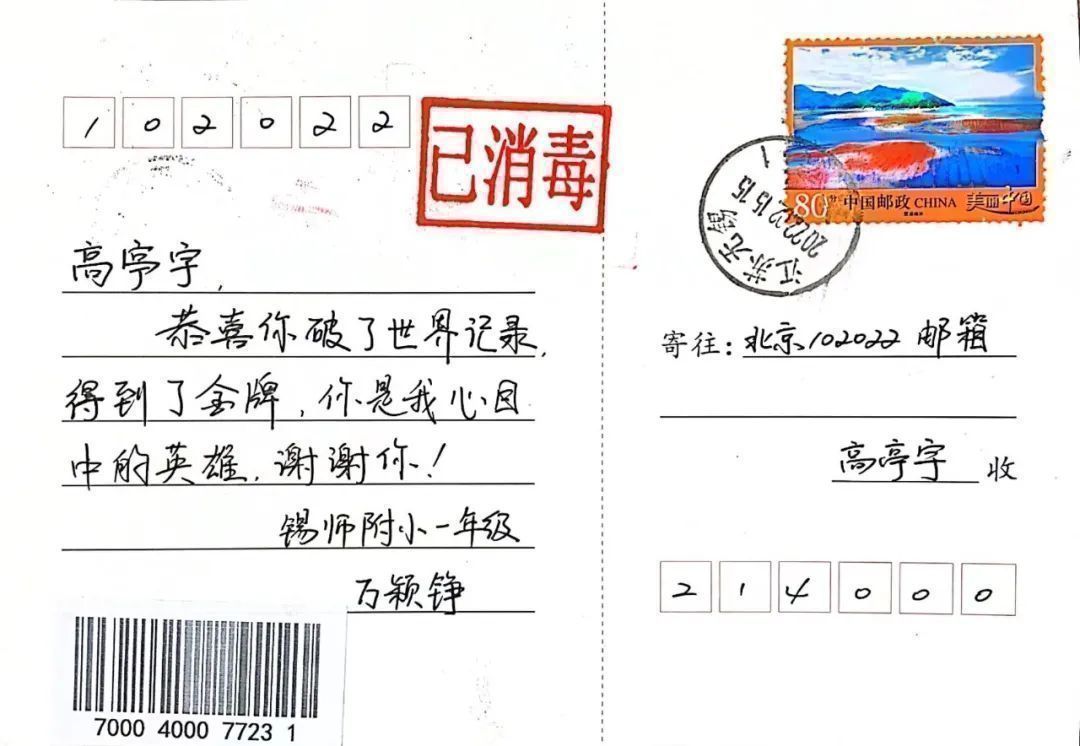 102022
已消毒
高亭宇,
恭喜你破了世界记录,
得到了金牌,你是我心目
中的英雄,谢谢你!
锡师附小一年级
万颖铮
7000 4000 7723 1
80分 中国邮政 CHINA 美丽中国
江苏无锡
2022.02.15.15
1
寄往:北京102022邮箱
高亭宇 收
214000